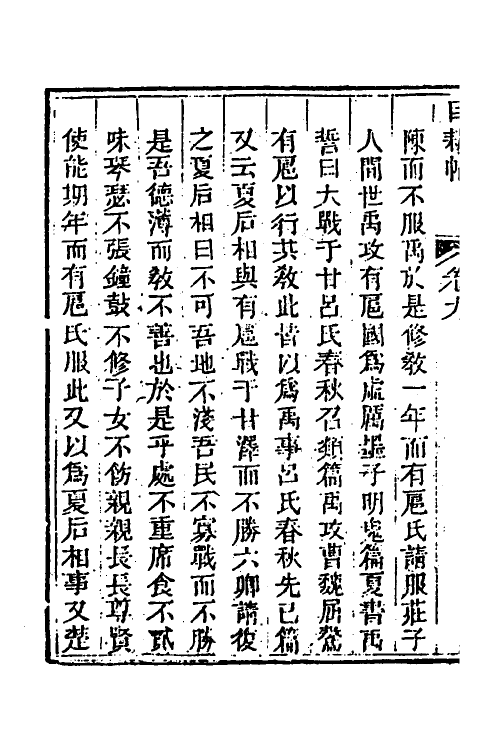 目耕帖 卷九
陳而不服禹於是修敎一年而有扈氏請服莊子
人間世禹攻有扈國爲虛厲墨子明鬼篇夏書禹
誓曰大戰于甘呂氏春秋召類篇禹攻曹魏屈驁
有扈以行其敎此皆以爲禹事呂氏春秋先已篇
又云夏后相與有扈戰于甘澤而不勝六卿請復
之夏后相曰不可吾地不淺吾民不寡戰而不勝
是吾德薄而敎不善也於是乎處不重席食不貳
味琴瑟不張鐘鼓不修子女不飭親親長長尊賢
使能期年而有扈氏服此又以爲夏后相事又楚